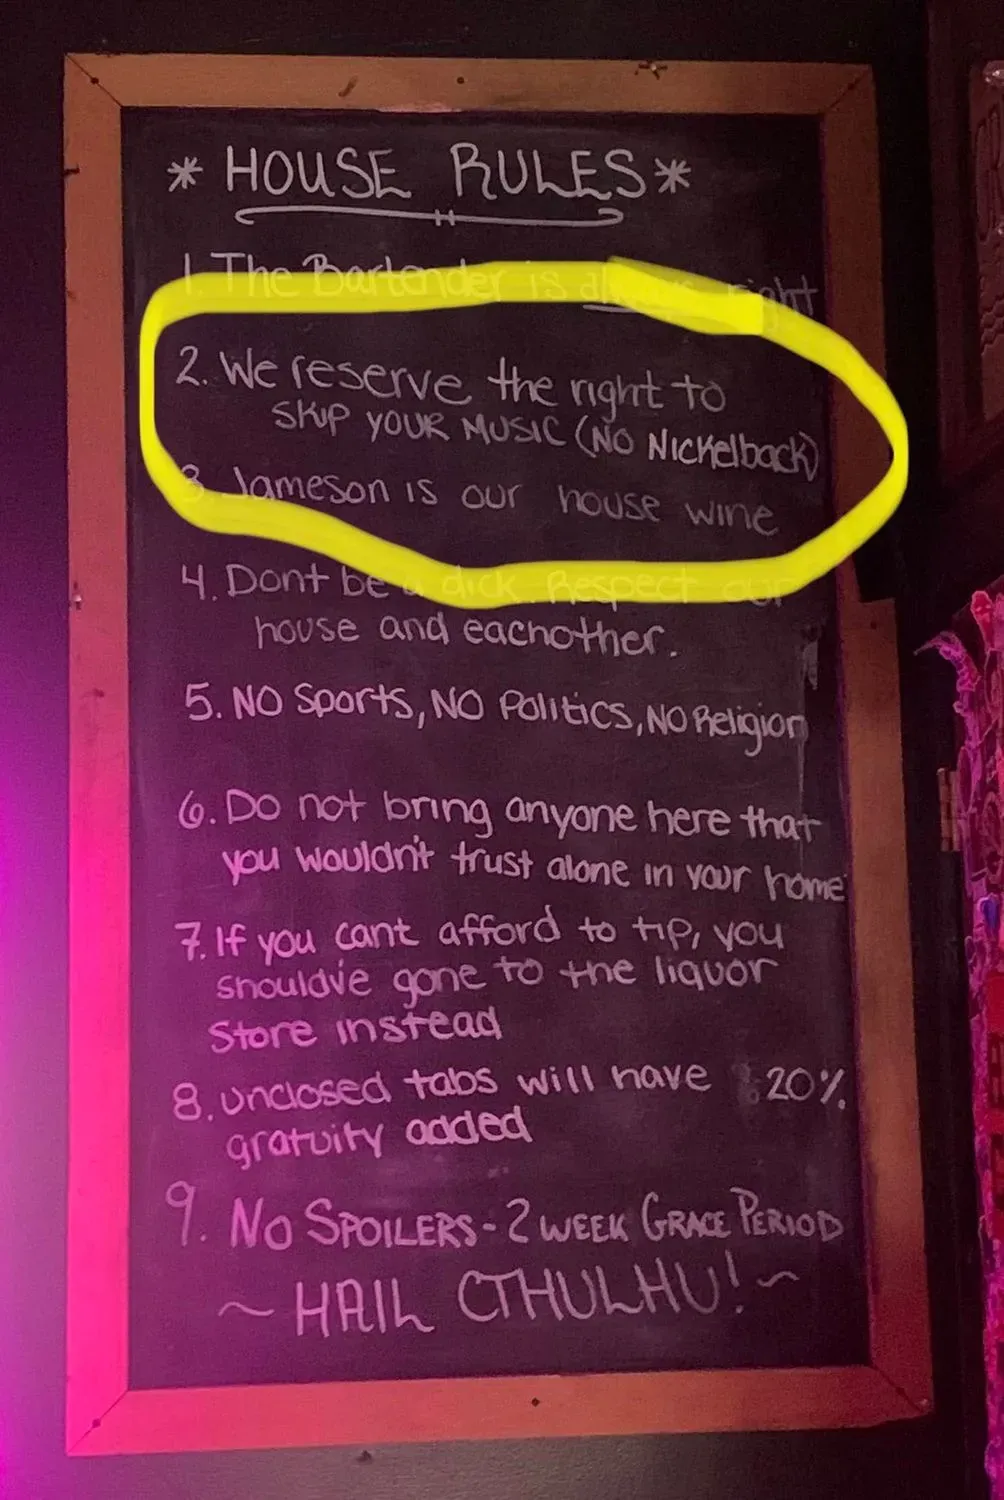 * HOUSE RULES *
1. The Bartender is always right
2. We reserve the right to
SKIP YOUR MUSIC (NO Nickelback)
3. Jameson is our house wine
4. Dont be a dick. Respect our
house and eachother.
5. NO Sports, NO Politics, NO Religion
6. Do not bring anyone here that
you wouldn't trust alone in your home
7. If you cant afford to tip, you
shouldv'e gone to the liquor
Store instead
8. unclosed tabs will have 20%
gratuity added
9. No SPOILERS - 2 WEEK GRACE PERIOD
~ HAIL CTHULHU! ~